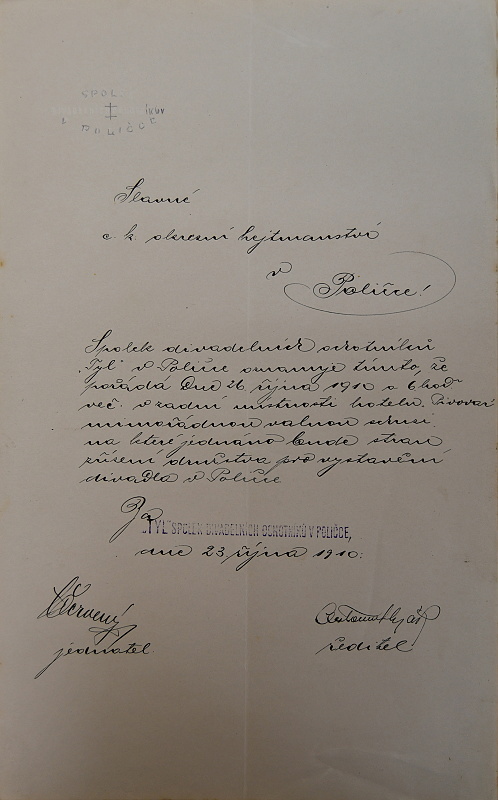 SPOL
V POLIČCE
Slavné
c. k. okresní hejtmanství
v
Poličce!
Spolek divadelních ochotníků
„Tyl" v Poličce oznamuje tímto, že
pořádá dne 26. října 1910 o 6 hod
več. v zadní místnosti hotelu Pivovar
mimořádnou valnou schůzi
na které jednáno bude stran
zřízení družstva pro vystavění
divadla v Poličce
Za
„TYL" SPOLEK DIVADELNÍCH OCHOTNÍKŮ V POLIČCE,
dne 23. října 1910.
Červený
jednatel
ředitel